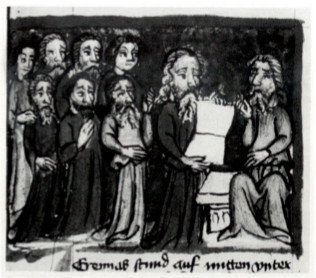 stund auf mitten vnter